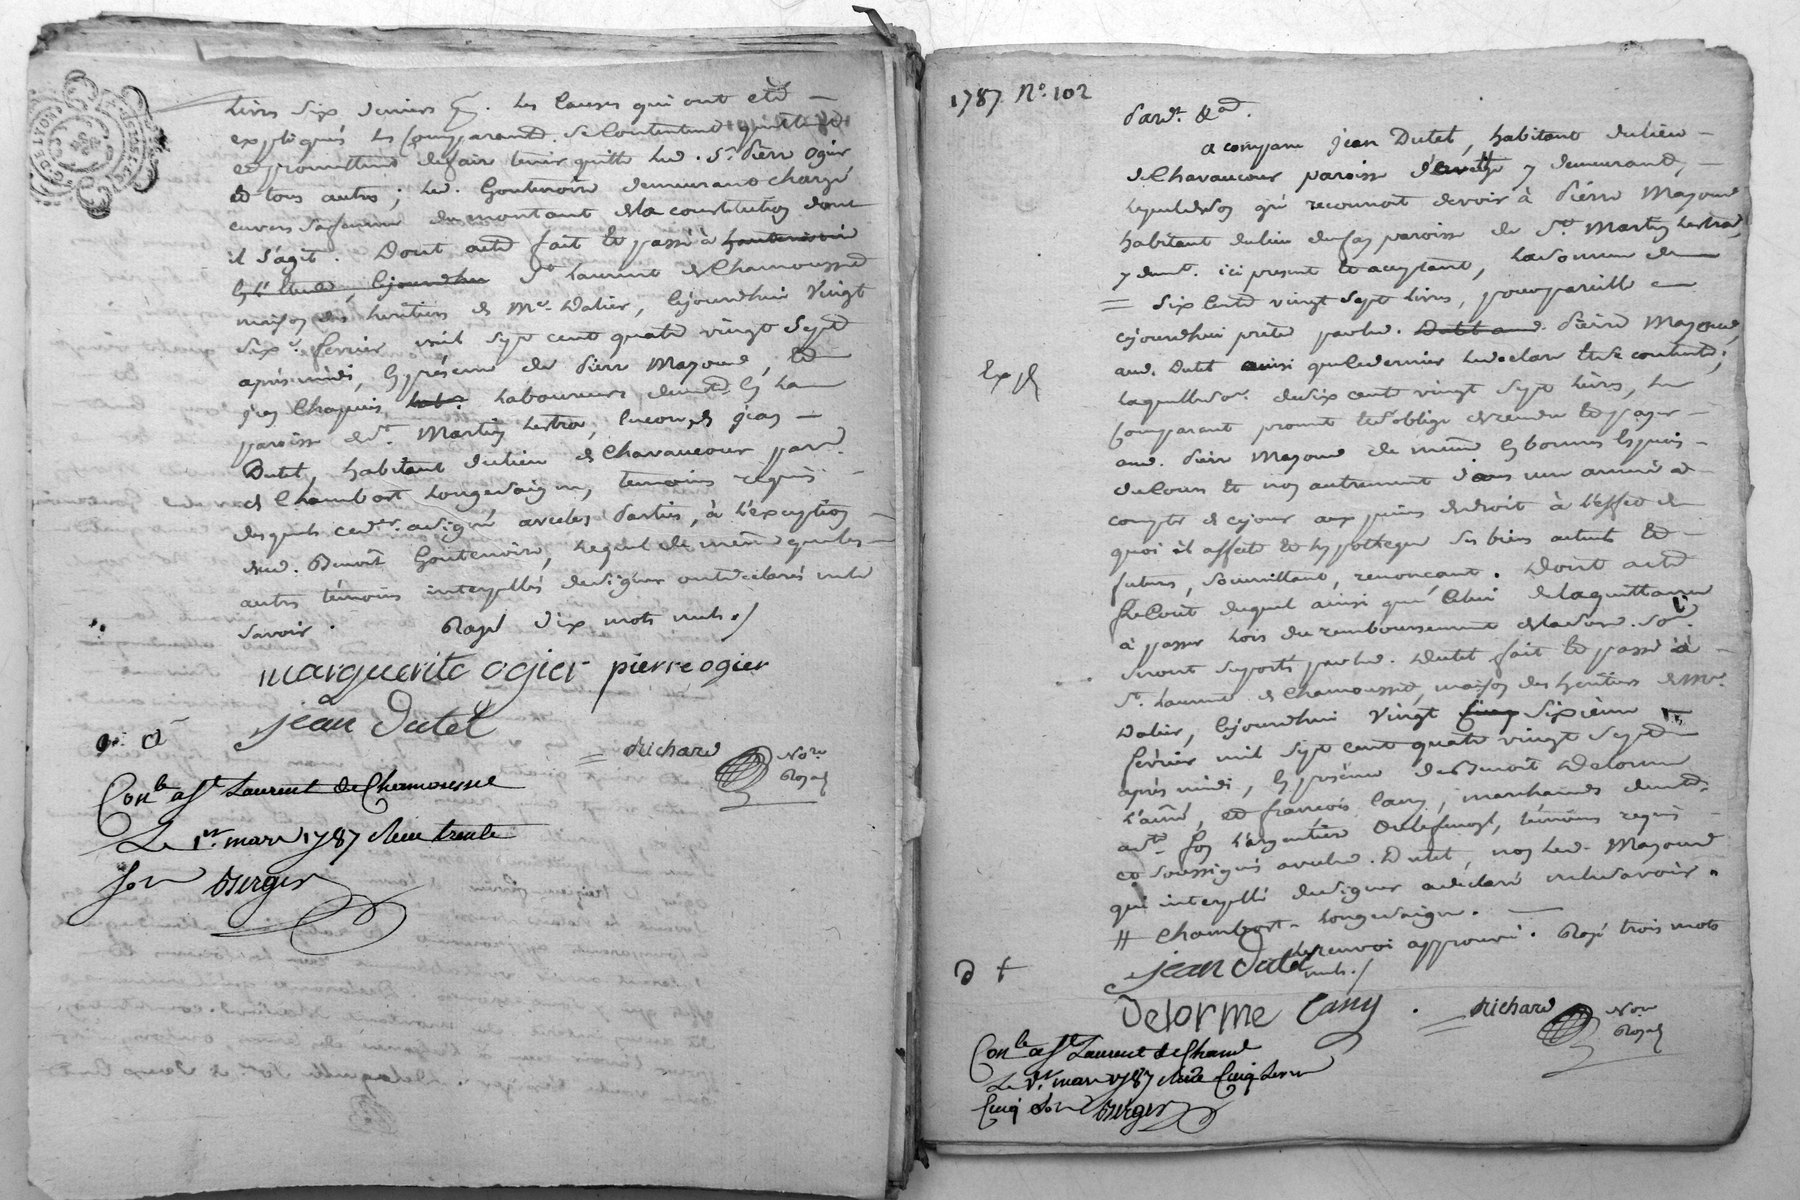 livres six deniers. Les causes qui ont été
expliqués les comparants se contentent quittent
et promettent de faire tenir quitte led. Sr. Pierre Ogier
et tous autres; led. Goutenoire demeurant chargé
envers sa femme du montant de la constitution dont
il s'agit. Dont acte fait et passé à
St. Laurent de Chamousset
maison des héritiers de Me. Dalier, cejourdhui vingt
six fevrier mil sept cent quatre vingt sept
après midi, en présence de Pierre Mazoud, et
jean Chapuis laboureurs demts. en la
paroisse de St. Martin Lestra, encore de jean
Dutel, habitant du lieu de Chavaucour par.
de Chambost Longesaigne, temoins requis
desquels ce dr. a signé avec les parties, à l'exception
dud. Benoît Goutenoire, lequel de même que les
autres témoins interpellés de signer ont declarés ne le
savoir. Rayé dix mots nuls./
marguerite ogier pierre ogier
jean dutel
Richard Nore Royal
Conle a St Laurent de Chamousset
Le 1er. mars 1787 Reçu trente
sols Berger
1787 No. 102
Pardt. &a.
a comparu jean Dutel, habitant du lieu
de Chavaucour paroisse d' y demeurant,
lequel de son gré reconnoit devoir à Pierre Mazoud
habitant du lieu du fay paroisse de St. Martin Lestra,
y demt. ici present et acceptant, la somme de
= six cent vingt sept livres, pour pareille
cejourdhui prêté par led. Pierre Mazoud,
aud. Dutel ainsi que le dernier le declare et se contente;
Exp
laquelle so. de six cent vingt sept livres, le
comparant promet et s'oblige de rendre et payer
aud. Pierre Mazoud de même en bonnes espèces
de cours et non autrement dans une année à
compter de cejour aux peines de droit à l'effet de
quoi il affecte et hypotheque ses biens actuels et
futurs, soumettant, renonçant. Dont acte
le cout duquel ainsi que celui de la quittance
à passer lors du remboursement de lad. so.
seront suportés par led. Dutel fait et passé à
St. Laurent de Chamousset, maison des héritiers de Me.
Dalier, cejourdhui vingt cinq sixième
février mil sept cent quatre vingt sept
après midi, en présence de Benoît Delorme
l'aîné, et françois Cany, marchands demts.
aud. l'argentière témoins requis
et soussignés avec led. Dutel, non led. Mazoud
qui interpellé de signer a déclaré ne le savoir.
# Chambost-Longesaigne.
le renvoi approuvé. Rayé trois mots
nuls./
jean dutel
Delorme Cany
Richard Nore Royal
Conle a St Laurent de Cham
Le 1er. mars 1787 Reçu cinq livres
cinq sols Berger